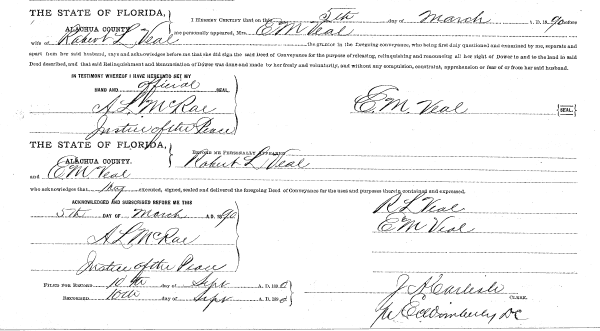 THE STATE OF FLORIDA,
ALACHUA COUNTY.
I HEREBY CERTIFY that on this 5th day of March A. D. 1890 before
me personally appeared, Mrs. E M Veal
wife of Robert L Veal the grantor in the foregoing conveyance, who being first duly questioned and examined by me, separate and
apart from her said husband, says and acknowledges before me that she did sign the said Deed of Conveyance for the purpose of releasing, relinquishing and renouncing all her right of Dower in and to the land in said
Deed described, and that said Relinquishment and Renunciation of Dower was done and made by her freely and voluntarily, and without any compulsion, constraint, apprehension or fear of or from her said husband.
IN TESTIMONY WHEREOF I HAVE HERETO SET MY
HAND AND official SEAL.
A L McRae
E. M. Veal [SEAL.]
Justice of the Peace
THE STATE OF FLORIDA,
ALACHUA COUNTY.
BEFORE ME PERSONALLY APPEARED Robert L Veal
and E M Veal
who acknowledges that they executed, signed, sealed and delivered the foregoing Deed of Conveyance for the uses and purposes therein contained and expressed.
ACKNOWLEDGED AND SUBSCRIBED BEFORE ME THIS
5th DAY OF March A. D. 1890
R L Veal
E M Veal
A L McRae
Justice of the Peace
FILED FOR RECORD 10th day of Sept A. D. 1890
RECORDED 10th day of Sept A. D. 1890
J A Carlisle CLERK.
E Wimberly DC